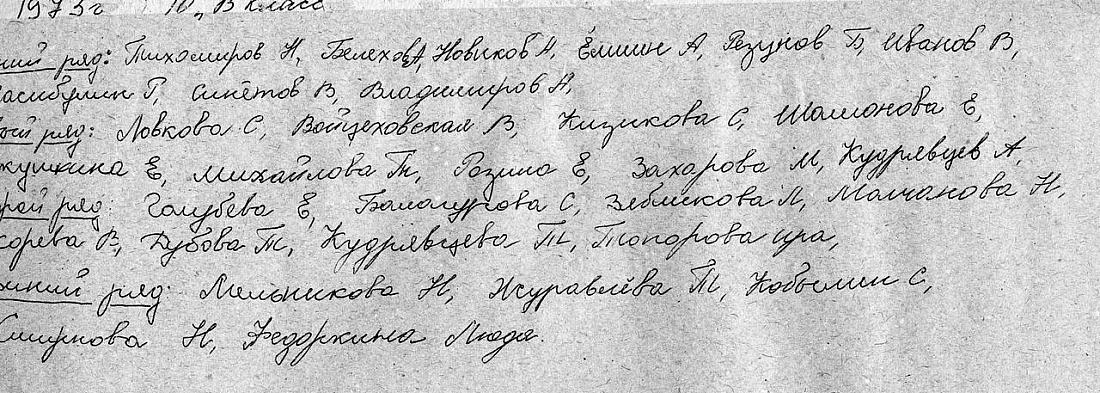 1973г 10 „В" класс
ний ряд: Тихомиров Н, Белехов А, Новиков А, Ёлшин А, Резунов Б, Иванов В,
асибулин Р, Синётов В, Владимиров А,
ой ряд: Ловкова С, Войцеховская В, Кизикова С, Шамонова Е,
кушкина Е, Михайлова Т, Розина Е, Захарова М, Кудрявцев А,
рой ряд: Голубева Е, Балагурова С, Зебликова Л, Молчанова Н,
корева В, Дубова Т, Кудрявцева Т, Топорова ира,
жний ряд: Мельникова Н, Журавлёва Т, Кобылин С,
Смирнова Н, Федоркина Люда.